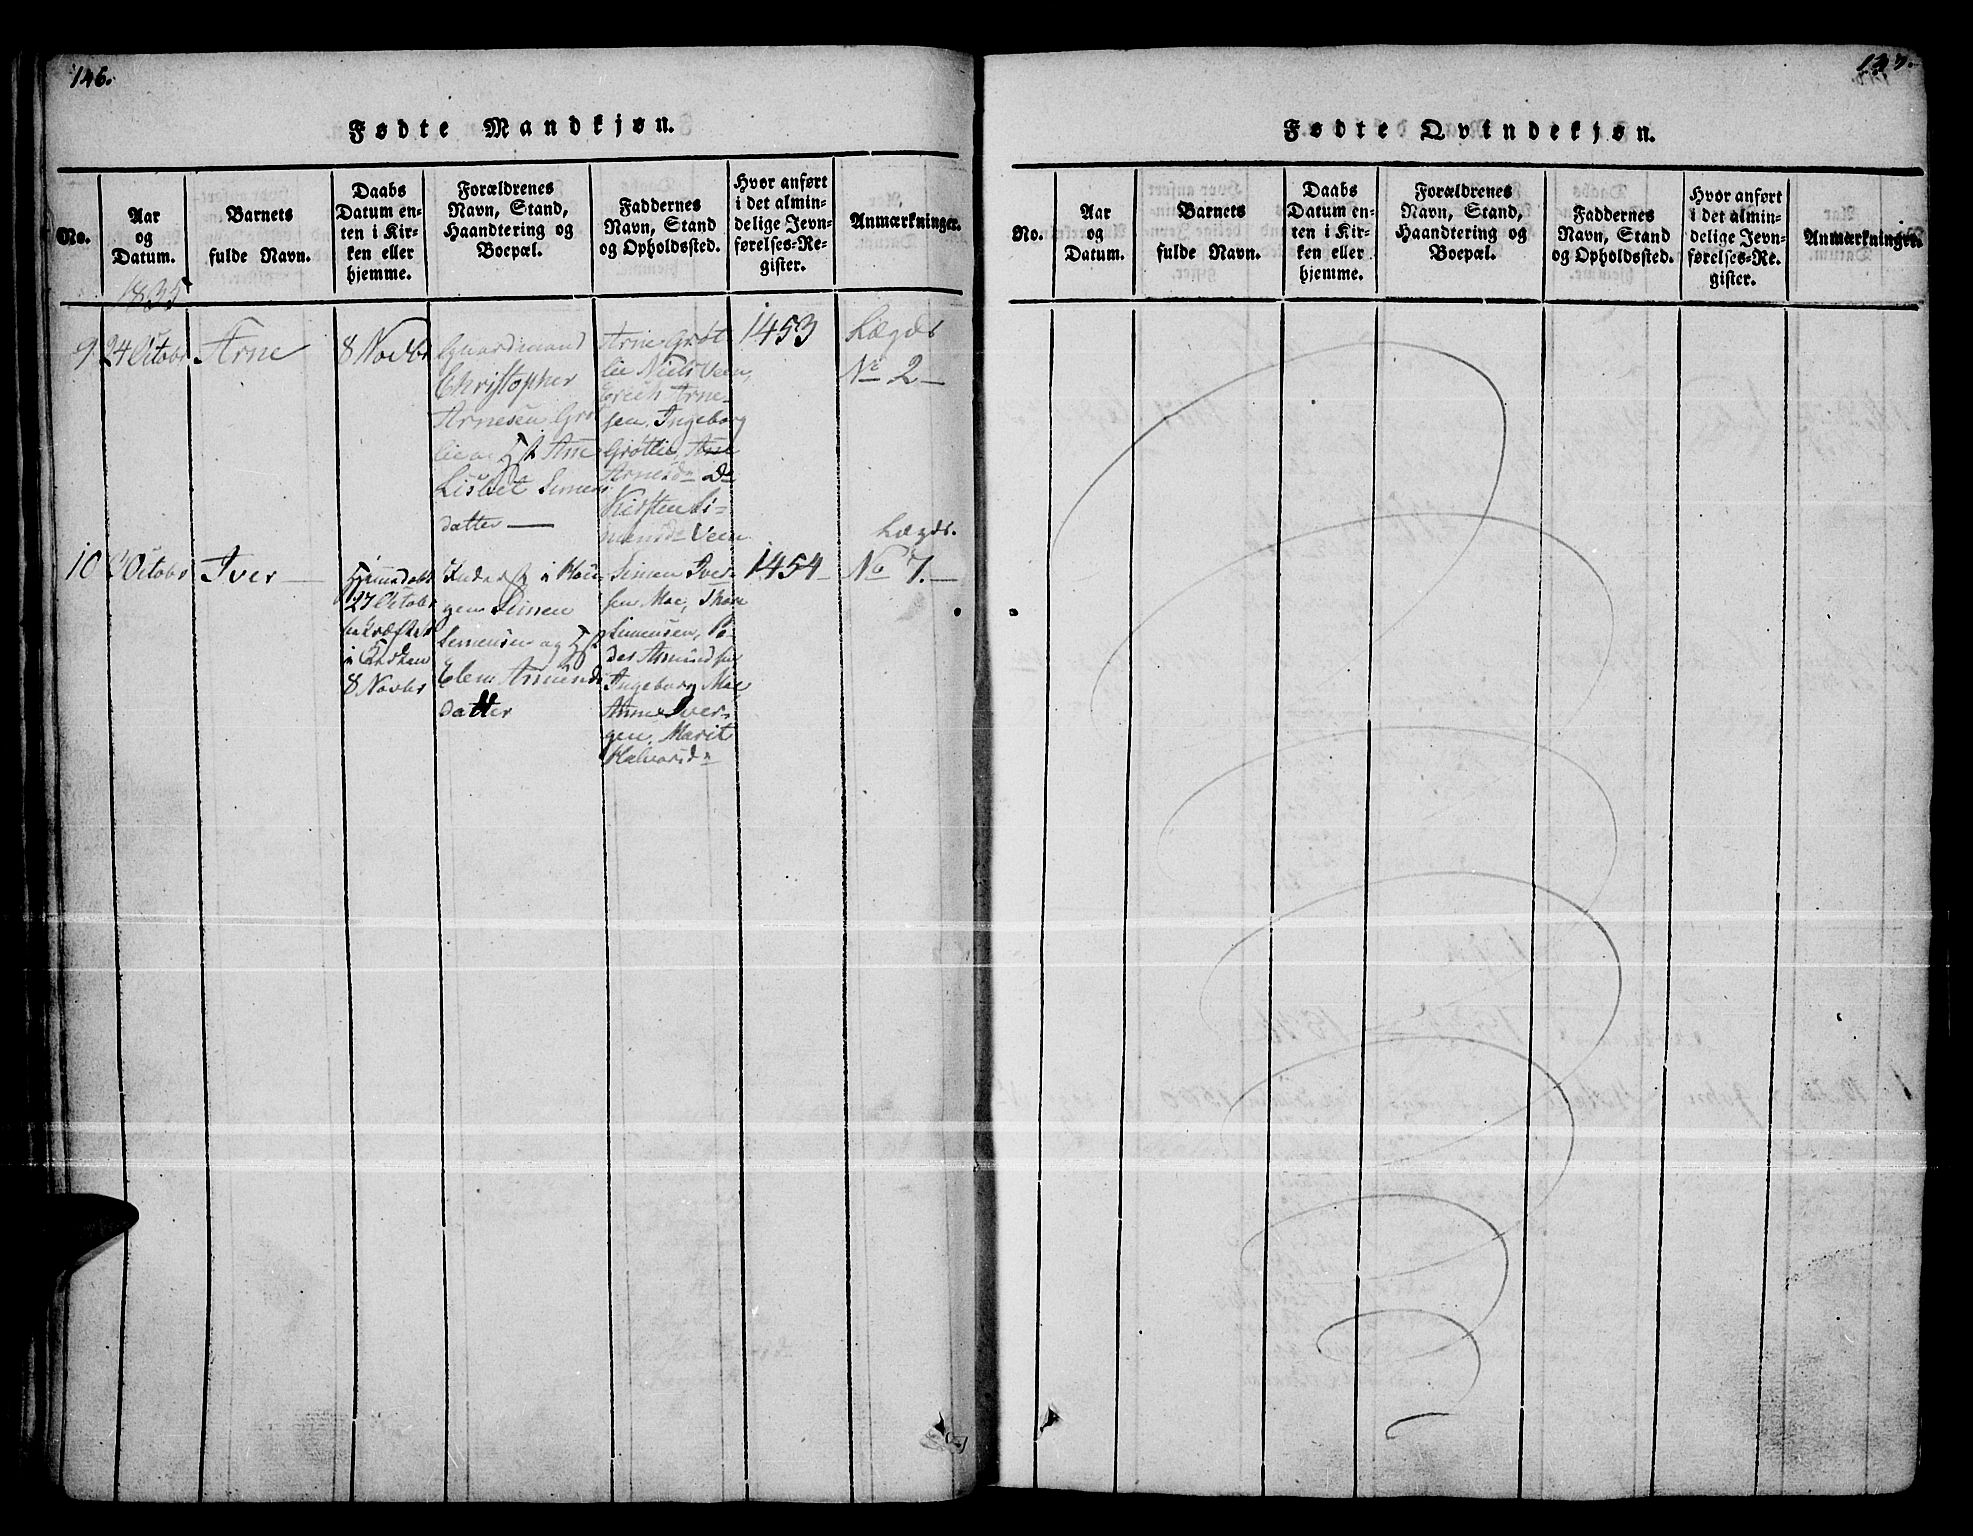 146.
Fødte Mandkjøn.
No.
Aar
og
Datum.
Barnets
fulde Navn.
Daabs
Datum en-
ten i Kir-
ken eller
hjemme.
Forældrenes
Navn, Stand,
Haandtering og
Boepæl.
Faddernes
Navn, Stand
og Opholdssted.
Hvor anført
i det almin-
delige Jevn-
førelses-Re-
gister.
Anmærkninger.
1835
9
24 Octobr
Arne
8 Novbr
Gaardmand
Christopher
Arnesen Grøt
lie og Hst Ane
Lisbet Simens
datter —
Arne Grøt
lie Niels Veen,
Erich Arne-
sen, Ingeborg
Grøtlie, Ane
Arnesdr
Kirsten Si-
mensdr Veen
1453
Lægds
No 2 —
10
Octobr
Iver —
Hjemmedøbt
27 Octobr
bekræftet
i Kirken
8 Novbr
Inderst i
gen Simen
Simensen og Hst
Elen Amunds
datter
Simen Iver-
sen Moe, Thore
Simensen, Pe-
der Amundsen
Ingeborg Moe,
Anne Iver-
gen, Marit
Halvorsdr
1454 —
Lægds.
No 7. —
147.
Fødte Qvindekjøn.
No.
Aar
og
Datum.
Barnets
fulde Navn.
Daabs
Datum en-
ten i Kir-
ken eller
hjemme.
Forældrenes
Navn, Stand,
Haandtering og
Boepæl.
Faddernes
Navn, Stand
og Opholdssted.
Hvor anført
i det almin-
delige Jevn-
førelses-Re-
gister.
Anmærkninger.